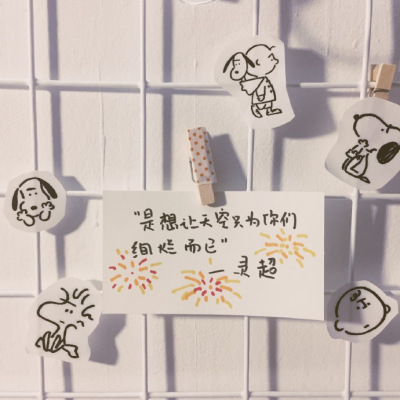 "是想让天空只为你们
绚烂而已"
—灵超